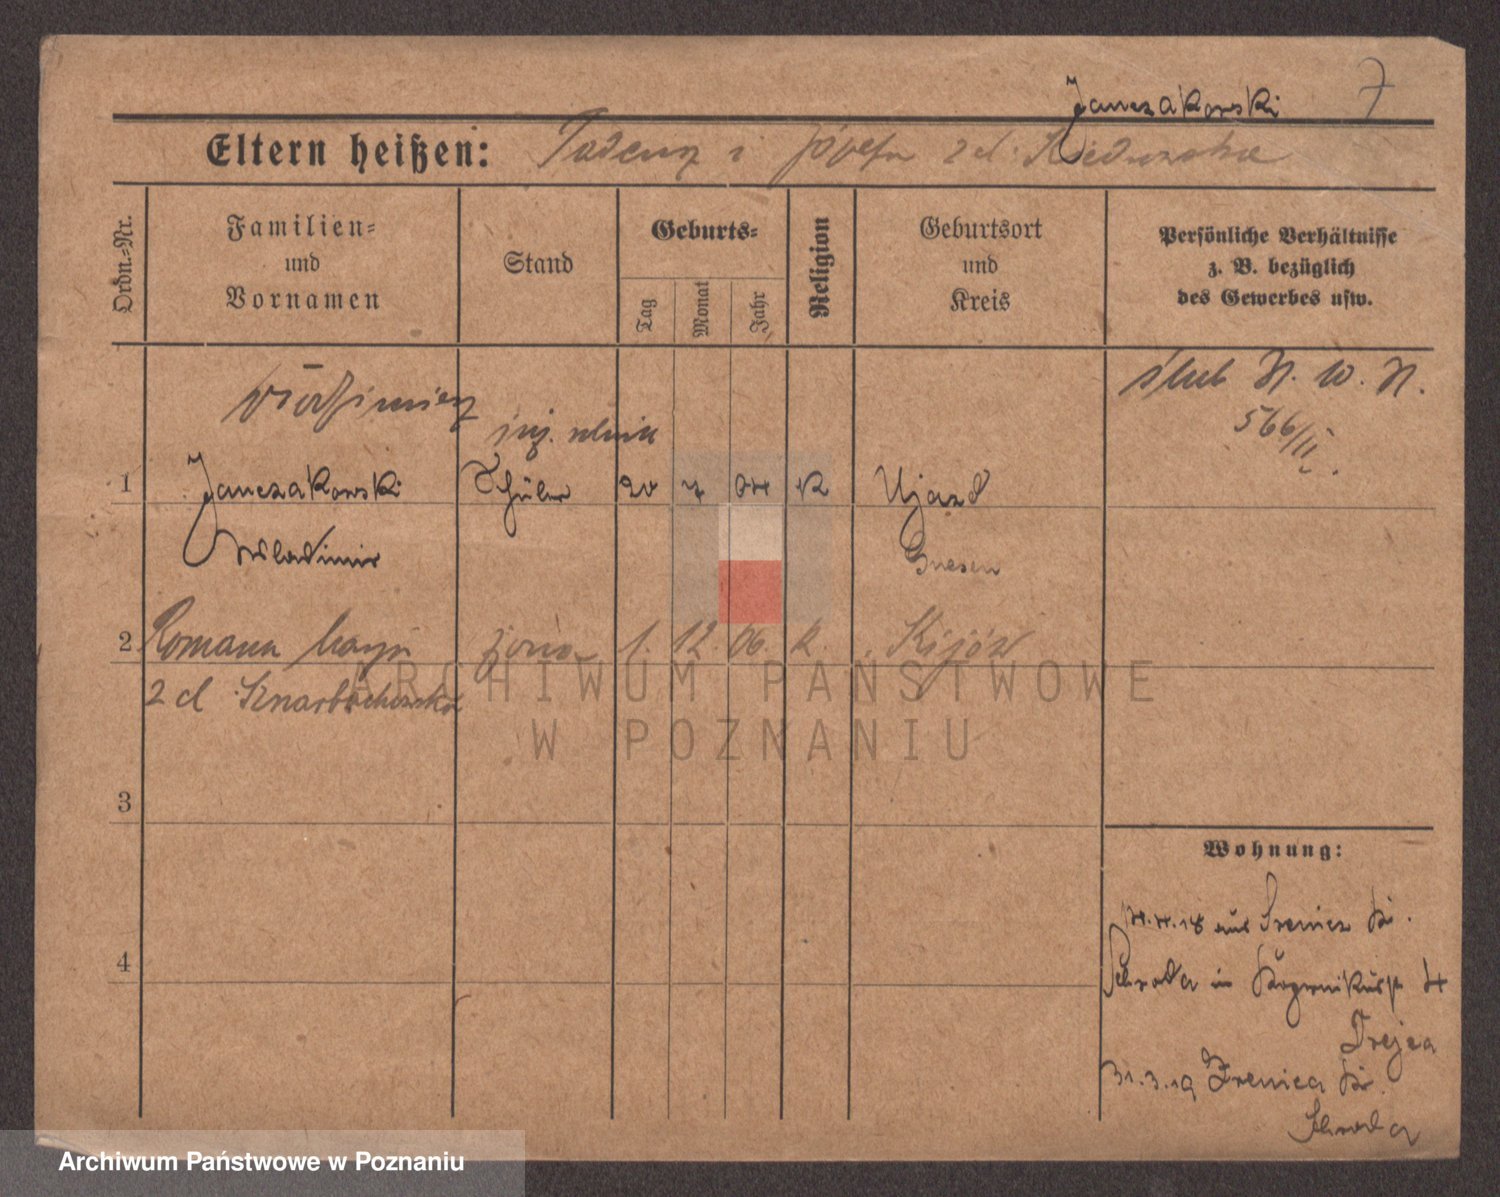 Janczakowski 7
Eltern heißen: Tadeusz i Józefa z d.
Ordn.-Nr.
Familien-
und
Vornamen
Stand
Geburts-
Tag
Monat
Jahr
Religion
Geburtsort
und
Kreis
Persönliche Verhältnisse
z. B. bezüglich
des Gewerbes usw.
Włodzimierz
inż.
ślub N. W. N.
566/II.
1 Janczakowski Schüler 20 7 04 K Ujazd
Wladimir Gnesen
2 Romana Marja żona 1. 12. 06. k. Kijów
z d
3
4
Wohnung:
4.4.18 aus Srenica Kr.
Schroda in Kopernikusstr 4
Drejca
31.3.19 Zrenica Kr.
Schroda
ARCHIWUM PAŃSTWOWE
W POZNANIU
Archiwum Państwowe w Poznaniu